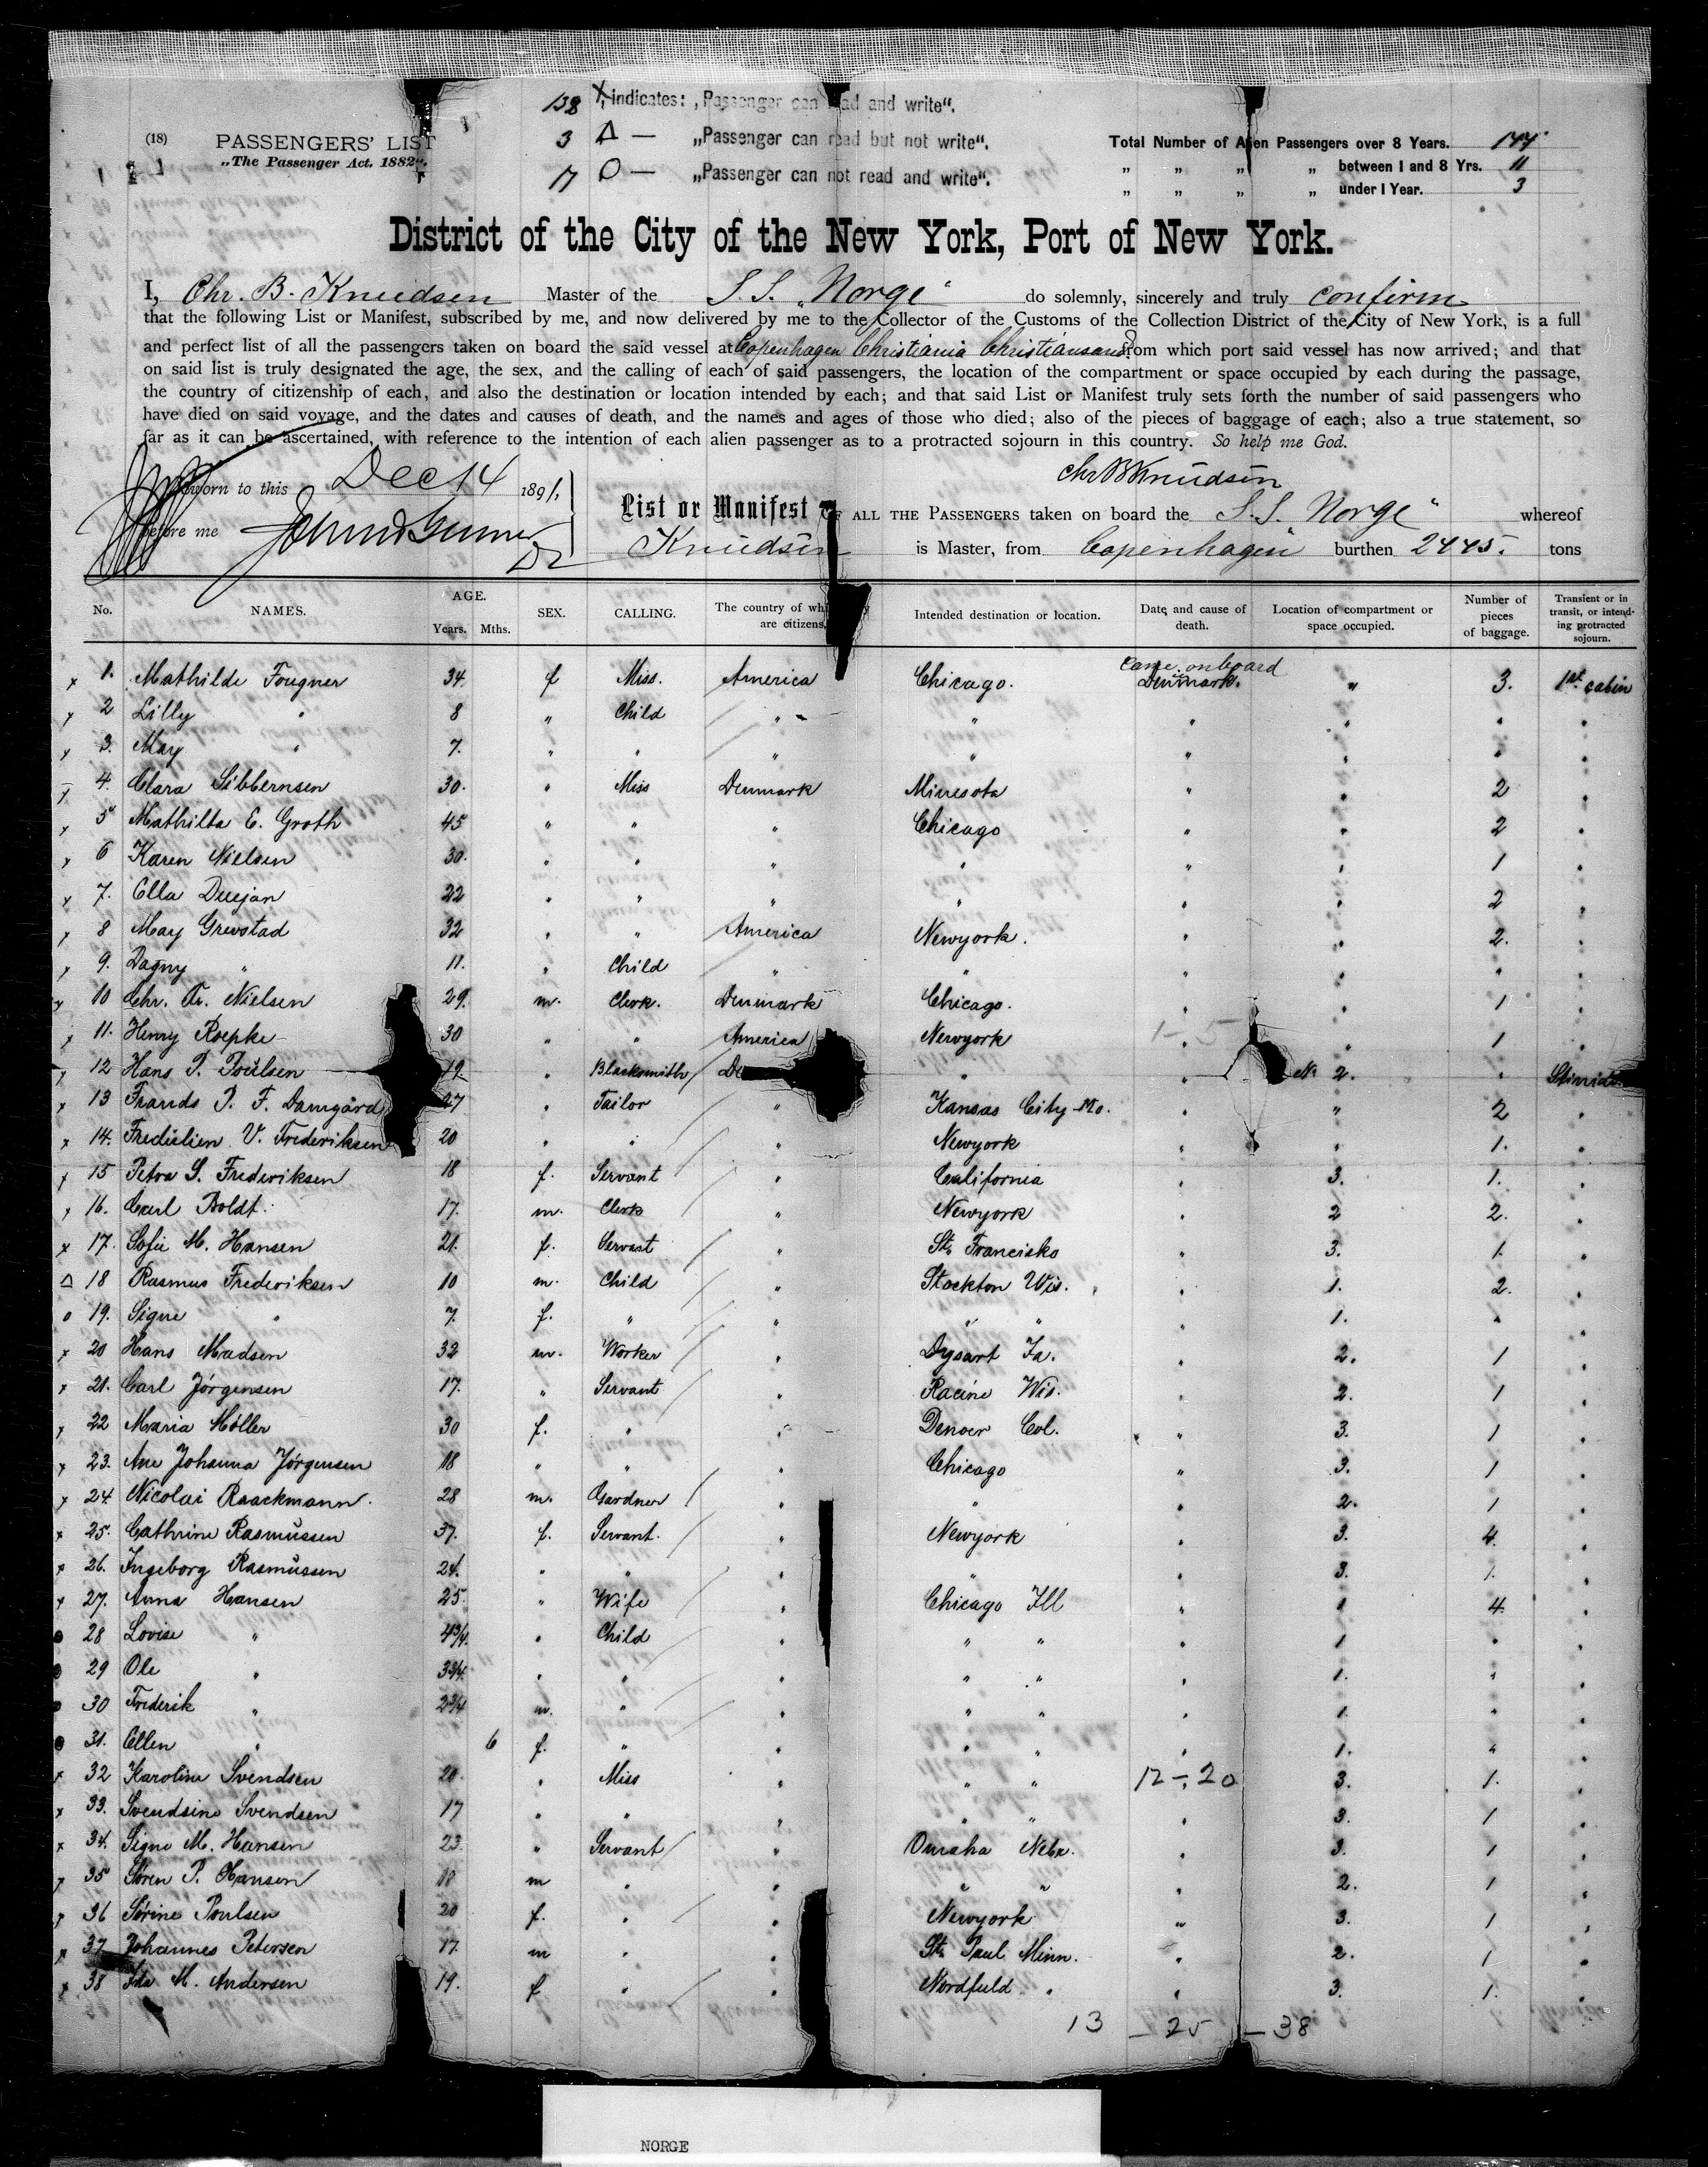 138 x, indicates: „Passenger can read and write“.
3 Δ — „Passenger can read but not write“.
17 O — „Passenger can not read and write“.
(18) PASSENGERS' LIST
„The Passenger Act. 1882“.
Total Number of Alien Passengers over 8 Years. 144
„ „ „ „ between 1 and 8 Yrs. 11
„ „ „ „ under 1 Year. 3
District of the City of the New York, Port of New York.
I, Chr. B. Knudsen Master of the S. S. „Norge“ do solemnly, sincerely and truly confirm
that the following List or Manifest, subscribed by me, and now delivered by me to the Collector of the Customs of the Collection District of the City of New York, is a full
and perfect list of all the passengers taken on board the said vessel at Copenhagen Christiania Christiansand from which port said vessel has now arrived; and that
on said list is truly designated the age, the sex, and the calling of each of said passengers, the location of the compartment or space occupied by each during the passage,
the country of citizenship of each, and also the destination or location intended by each; and that said List or Manifest truly sets forth the number of said passengers who
have died on said voyage, and the dates and causes of death, and the names and ages of those who died; also of the pieces of baggage of each; also a true statement, so
far as it can be ascertained, with reference to the intention of each alien passenger as to a protracted sojourn in this country. So help me God.
Chr B Knudsen
Sworn to this Dec 14 1891,
before me
List or Manifest OF ALL THE PASSENGERS taken on board the S. S. „Norge“ whereof
Knudsen is Master, from Copenhagen burthen 2445. tons
No. NAMES. AGE. Years. Mths. SEX. CALLING. The country of which are citizens. Intended destination or location. Date and cause of death. Location of compartment or space occupied. Number of pieces of baggage. Transient or in transit, or intending protracted sojourn.
x 1. Mathilde Fougner 34 f Miss. America Chicago. Came onboard Denmark. „ 3. 1st cabin
x 2 Lilly „ 8 „ Child „ „ „ „ „ „
x 3. May „ 7. „ „ „ „ „ „ „ „
x 4. Clara Sibbernsen 30. „ Miss Denmark Minesota „ „ 2 „
x 5 Mathilta E. Groth 45 „ „ „ Chicago „ „ 2 „
x 6 Karen Nielsen 30. „ „ „ „ „ „ 1 „
x 7. Ella Duejan 22 „ „ „ „ „ „ 2 „
x 8 May Grevstad 32 „ „ America Newyork. „ „ 2. „
x 9. Dagny „ 11. „ Child „ „ „ „ „ „
x 10 Chr. Fr. Nielsen 29. m. Clerk. Denmark Chicago. „ „ 1 „
x 11. Henry Roepke 30 „ „ America Newyork „ „ 1 „
x 12 Hans P. Poulsen 19 „ Blacksmith De „ „ No 2. „
x 13 Frands P. F. Damgård 27 „ Tailor „ Kansas City Mo. „ „ 2 „
x 14. V. Frederiksen 20 „ „ „ Newyork „ „ 1. „
x 15 Petra S. Frederiksen 18 f. Servant „ California „ 3. 1. „
x 16. Carl Boldt 17. m. Clerk „ Newyork „ 2 2. „
x 17. Sofie M. Hansen 21. f. Servant „ St. Francisko „ 3. 1. „
Δ 18 Rasmus Frederiksen 10 m. Child „ Stockton Wis. „ 1. 2. „
o 19. Signe „ 7. f. „ „ „ „ „ 1. „ „
x 20 Hans Madsen 32 m. Worker „ Dysart Ia. „ 2. 1 „
x 21. Carl Jørgensen 17. „ Servant „ Racine Wis. „ 2. 1 „
x 22 Maria Møller 30 f. „ „ Denver Col. „ 3. 1 „
x 23. Ane Johanna Jørgensen 18 „ „ „ Chicago „ 3. 1 „
x 24 Nicolai Raackmann. 28 m. Gardner „ „ „ 2. 1 „
x 25. Cathrine Rasmussen 37. f. Servant. „ Newyork „ 3. 4. „
x 26. Ingeborg Rasmussen 24. „ „ „ „ „ 3. 1. „
x 27. Anna Hansen 25. „ Wife „ Chicago Ill „ 1 4. „
28 Lovise „ 4 3/4. „ Child „ „ „ „ 1 „ „
29 Ole „ 3 3/4. „ „ „ „ „ „ 1. „ „
30 Frederik „ 2 3/4 m. „ „ „ „ „ 1. „ „
31. Ellen „ 6 f. „ „ „ „ „ 1. „ „
x 32 Karoline Svendsen 20. „ Miss „ „ „ 12-20 3. 1. „
x 33. Svendsine Svendsen 17 „ „ „ „ „ „ 3. 1 „
x 34. Signe M. Hansen 23. „ Servant „ Omaha Nebr. „ 3. 1 „
x 35 Søren P. Hansen 18 m „ „ „ „ „ 2. 1 „
x 36 Sørine Poulsen 20 f. „ „ Newyork „ 3. 1 „
x 37 Johannes Petersen 17. m „ „ St. Paul Minn. „ 2. 1 „
x 38 Ida M. Andersen 19. f „ „ Nordfield „ „ 3. 1. „
13 — 25 — 38
NORGE